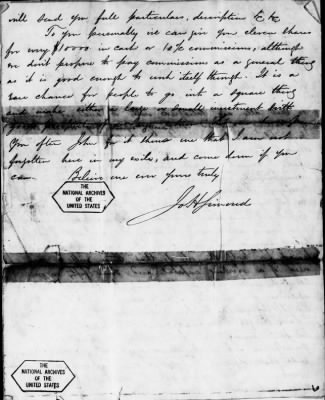 will send you full particulars, description &c &c
To you personally we can give you eleven shares
for every $10000 in cash or 10% commissions, although
we don't propose to pay commissions as a general thing
as it is good enough to lend itself though. It is a
rare chance for people to go into a square thing
and make either a large or small investment with
You often John for it shows me that I am not
forgotten here in my exile, and come down if you
can. Believe me ever yours truly
THE
NATIONAL ARCHIVES
OF THE
UNITED STATES
THE
NATIONAL ARCHIVES
OF THE
UNITED STATES